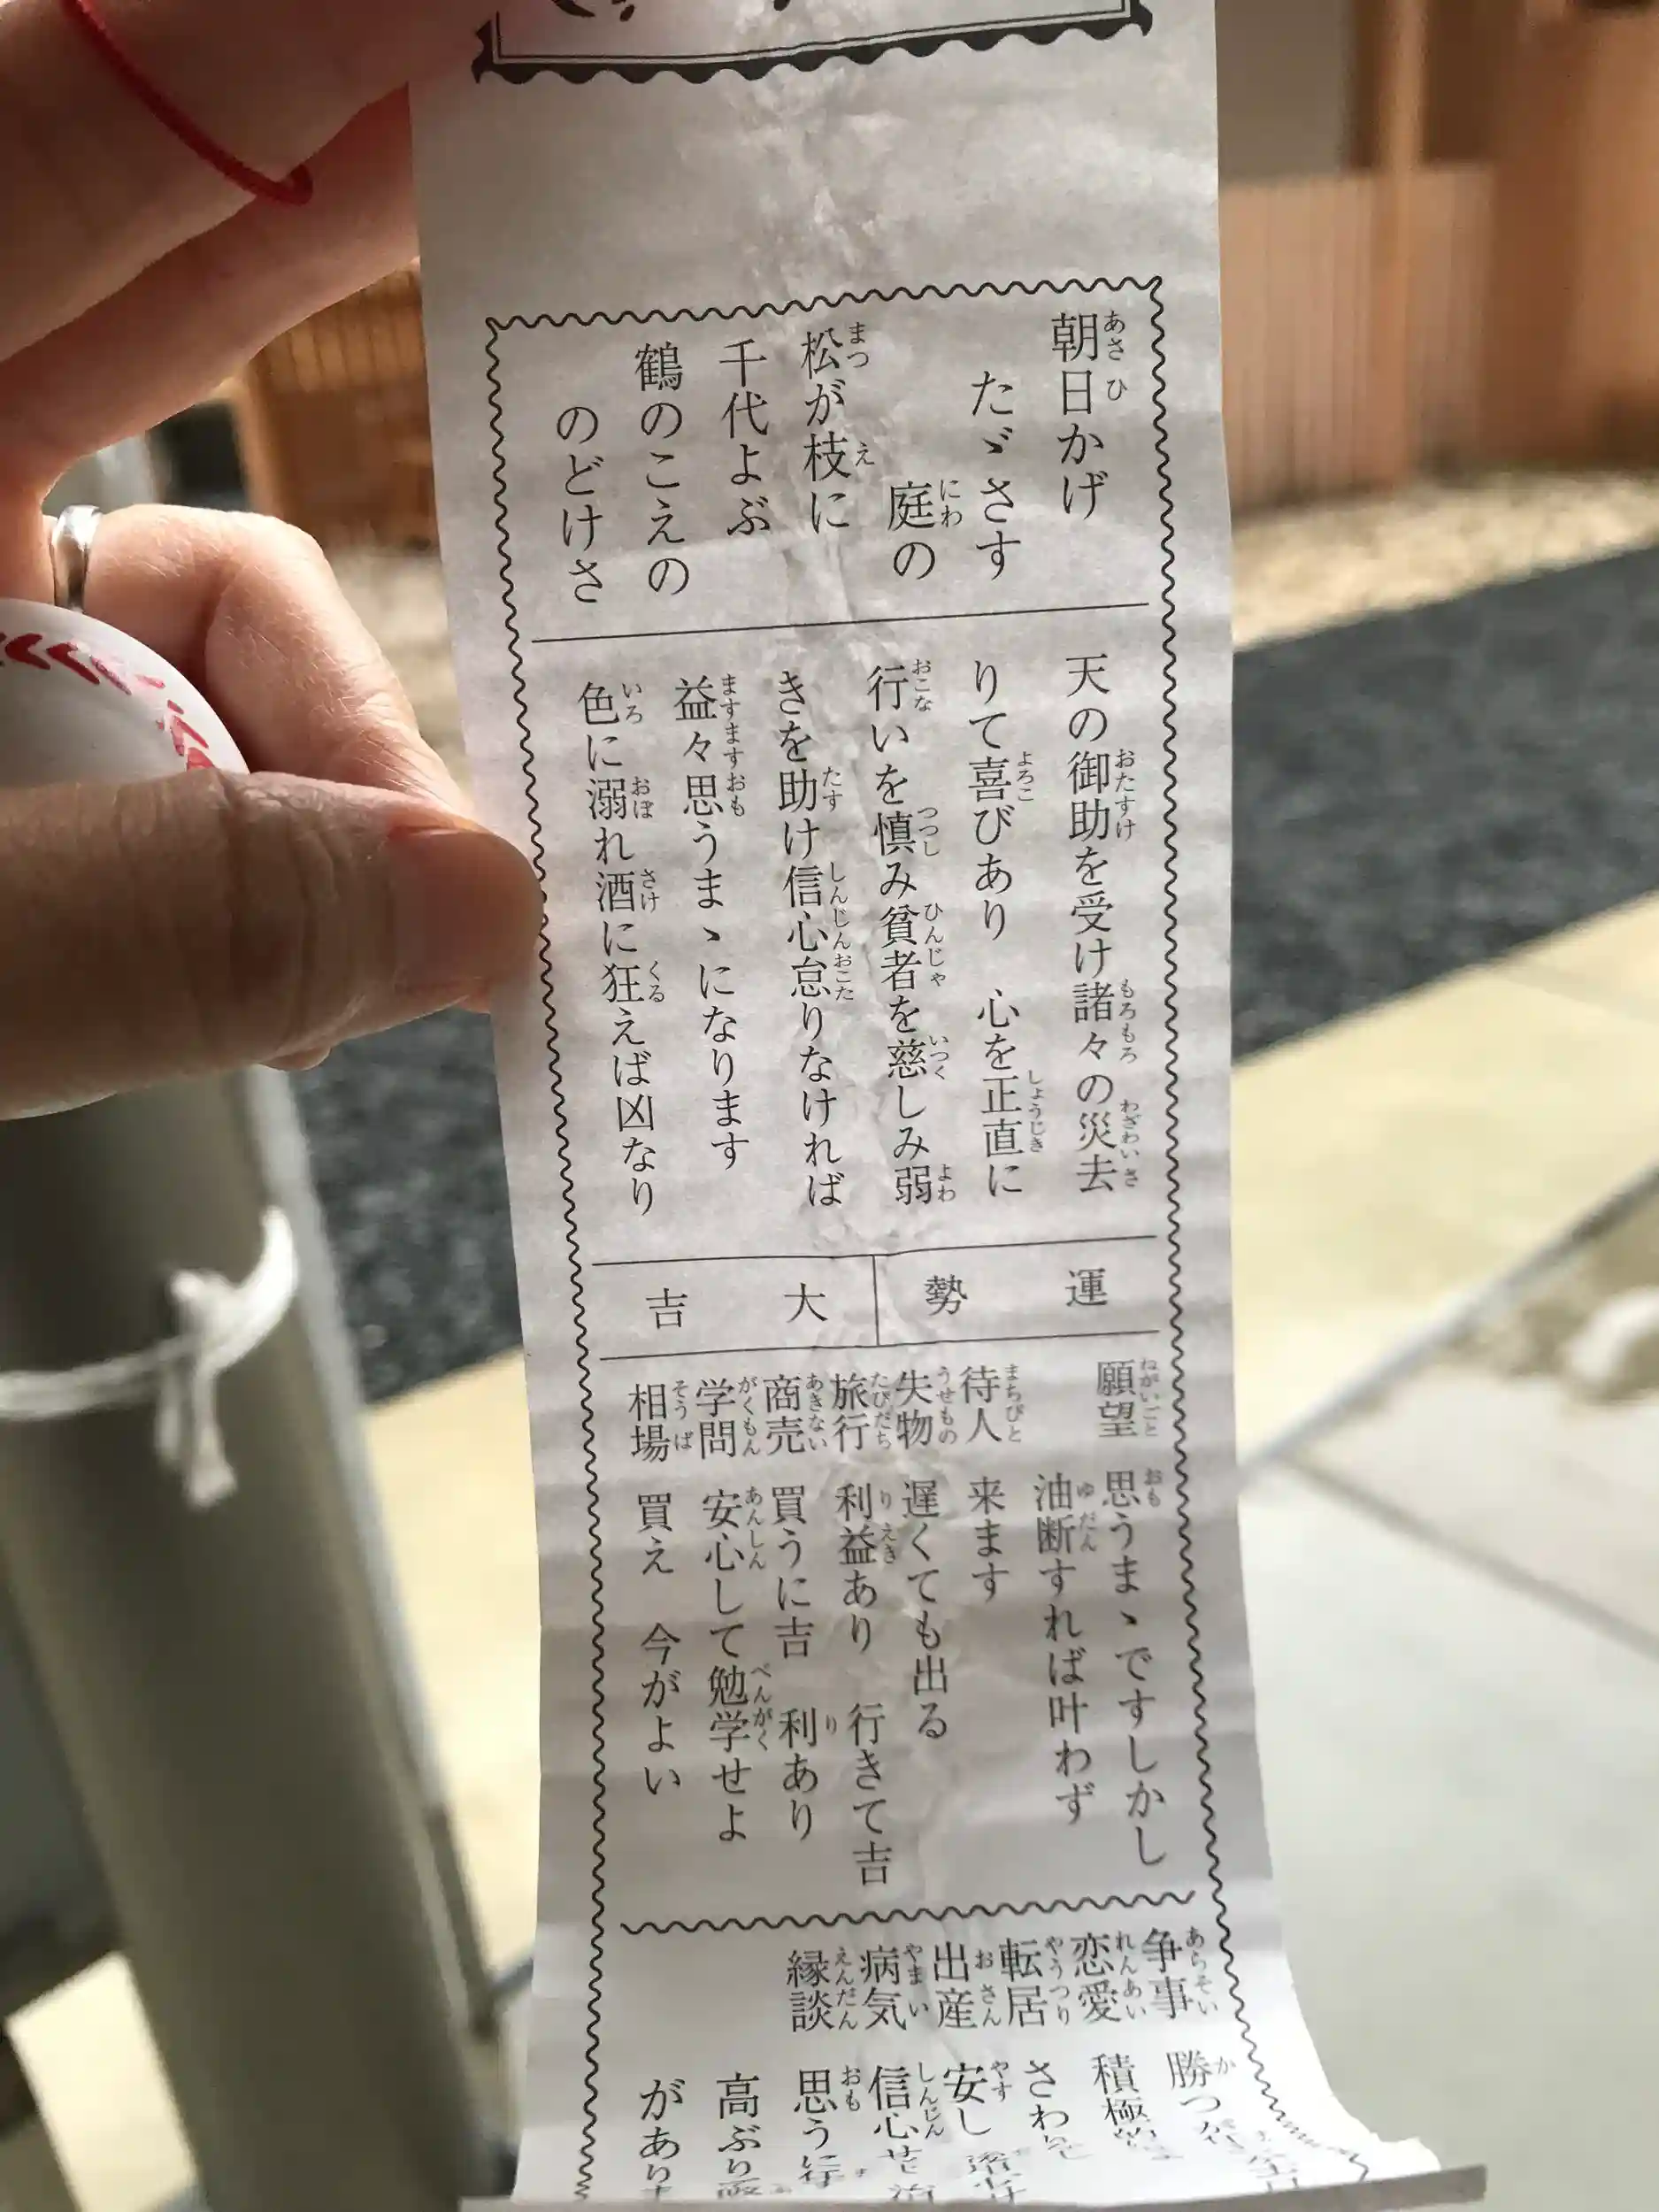 朝日かげ
たゞさす
庭の
松が枝に
千代よぶ
鶴のこえの
のどけさ
天の御助を受け諸々の災去
りて喜びあり 心を正直に
行いを慎み貧者を慈しみ弱
きを助け信心怠りなければ
益々思うまゝになります
色に溺れ酒に狂えば凶なり
運勢
大吉
願望 思うまゝですしかし
油断すれば叶わず
待人 来ます
失物 遅くても出る
旅行 利益あり 行きて吉
商売 買うに吉 利あり
学問 安心して勉学せよ
相場 買え 今がよい
争事 勝つ
恋愛 積極的
転居 さわ
出産 安し
病気 信心せ
縁談 思う
高ぶり
があり